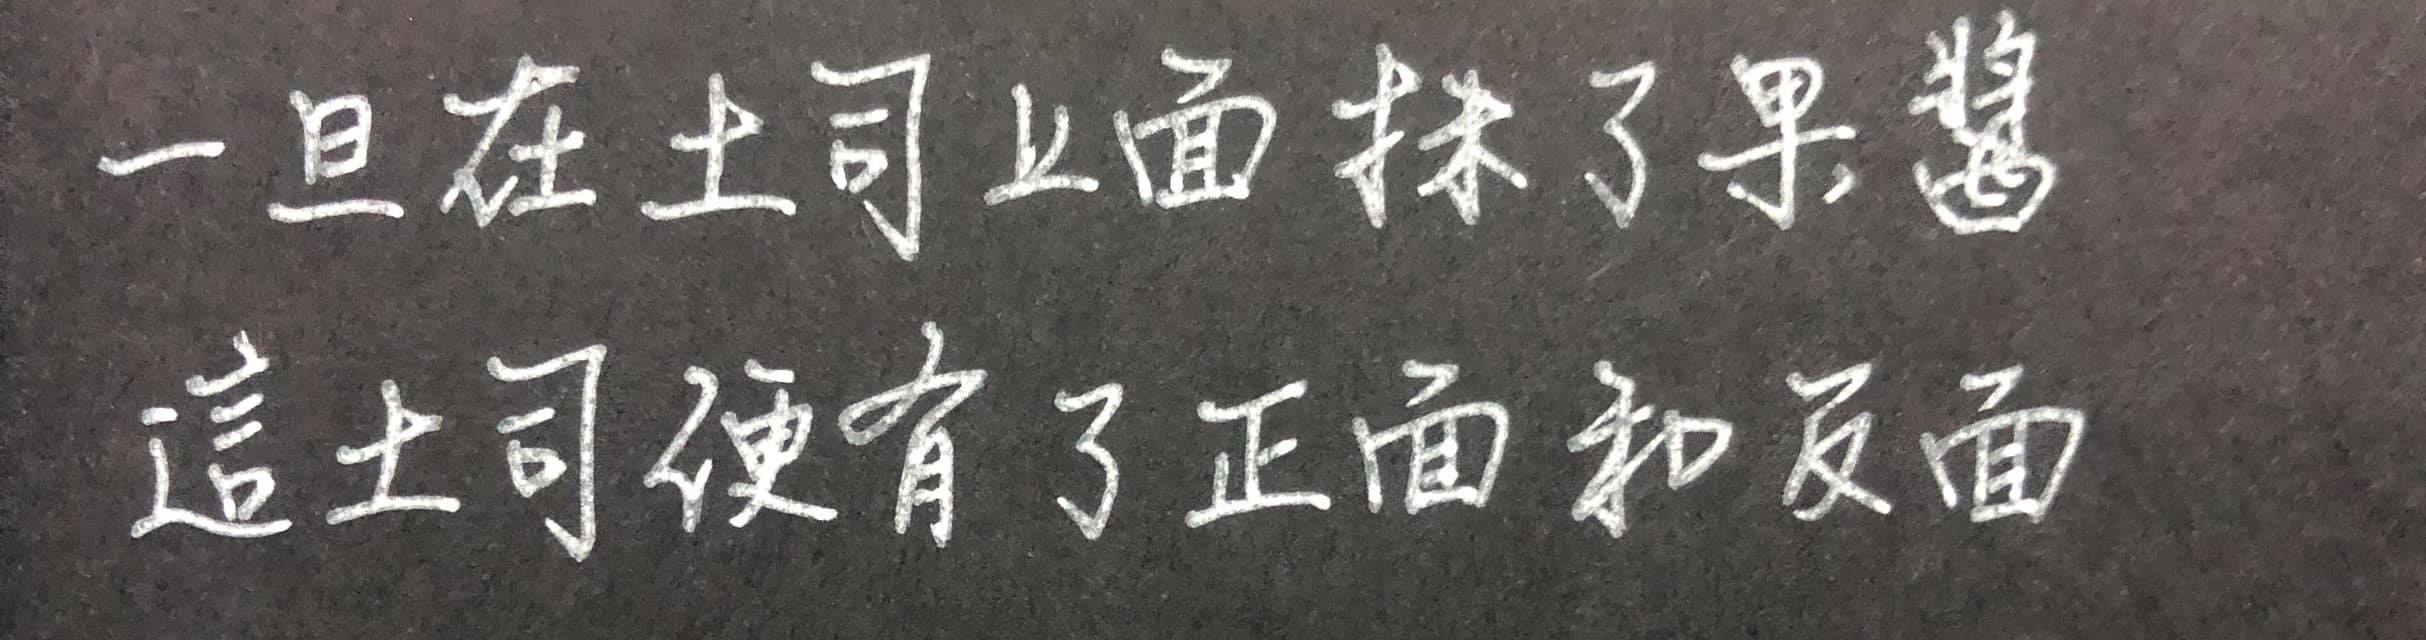 一旦在土司上面抹了果醬
這土司便有了正面和反面